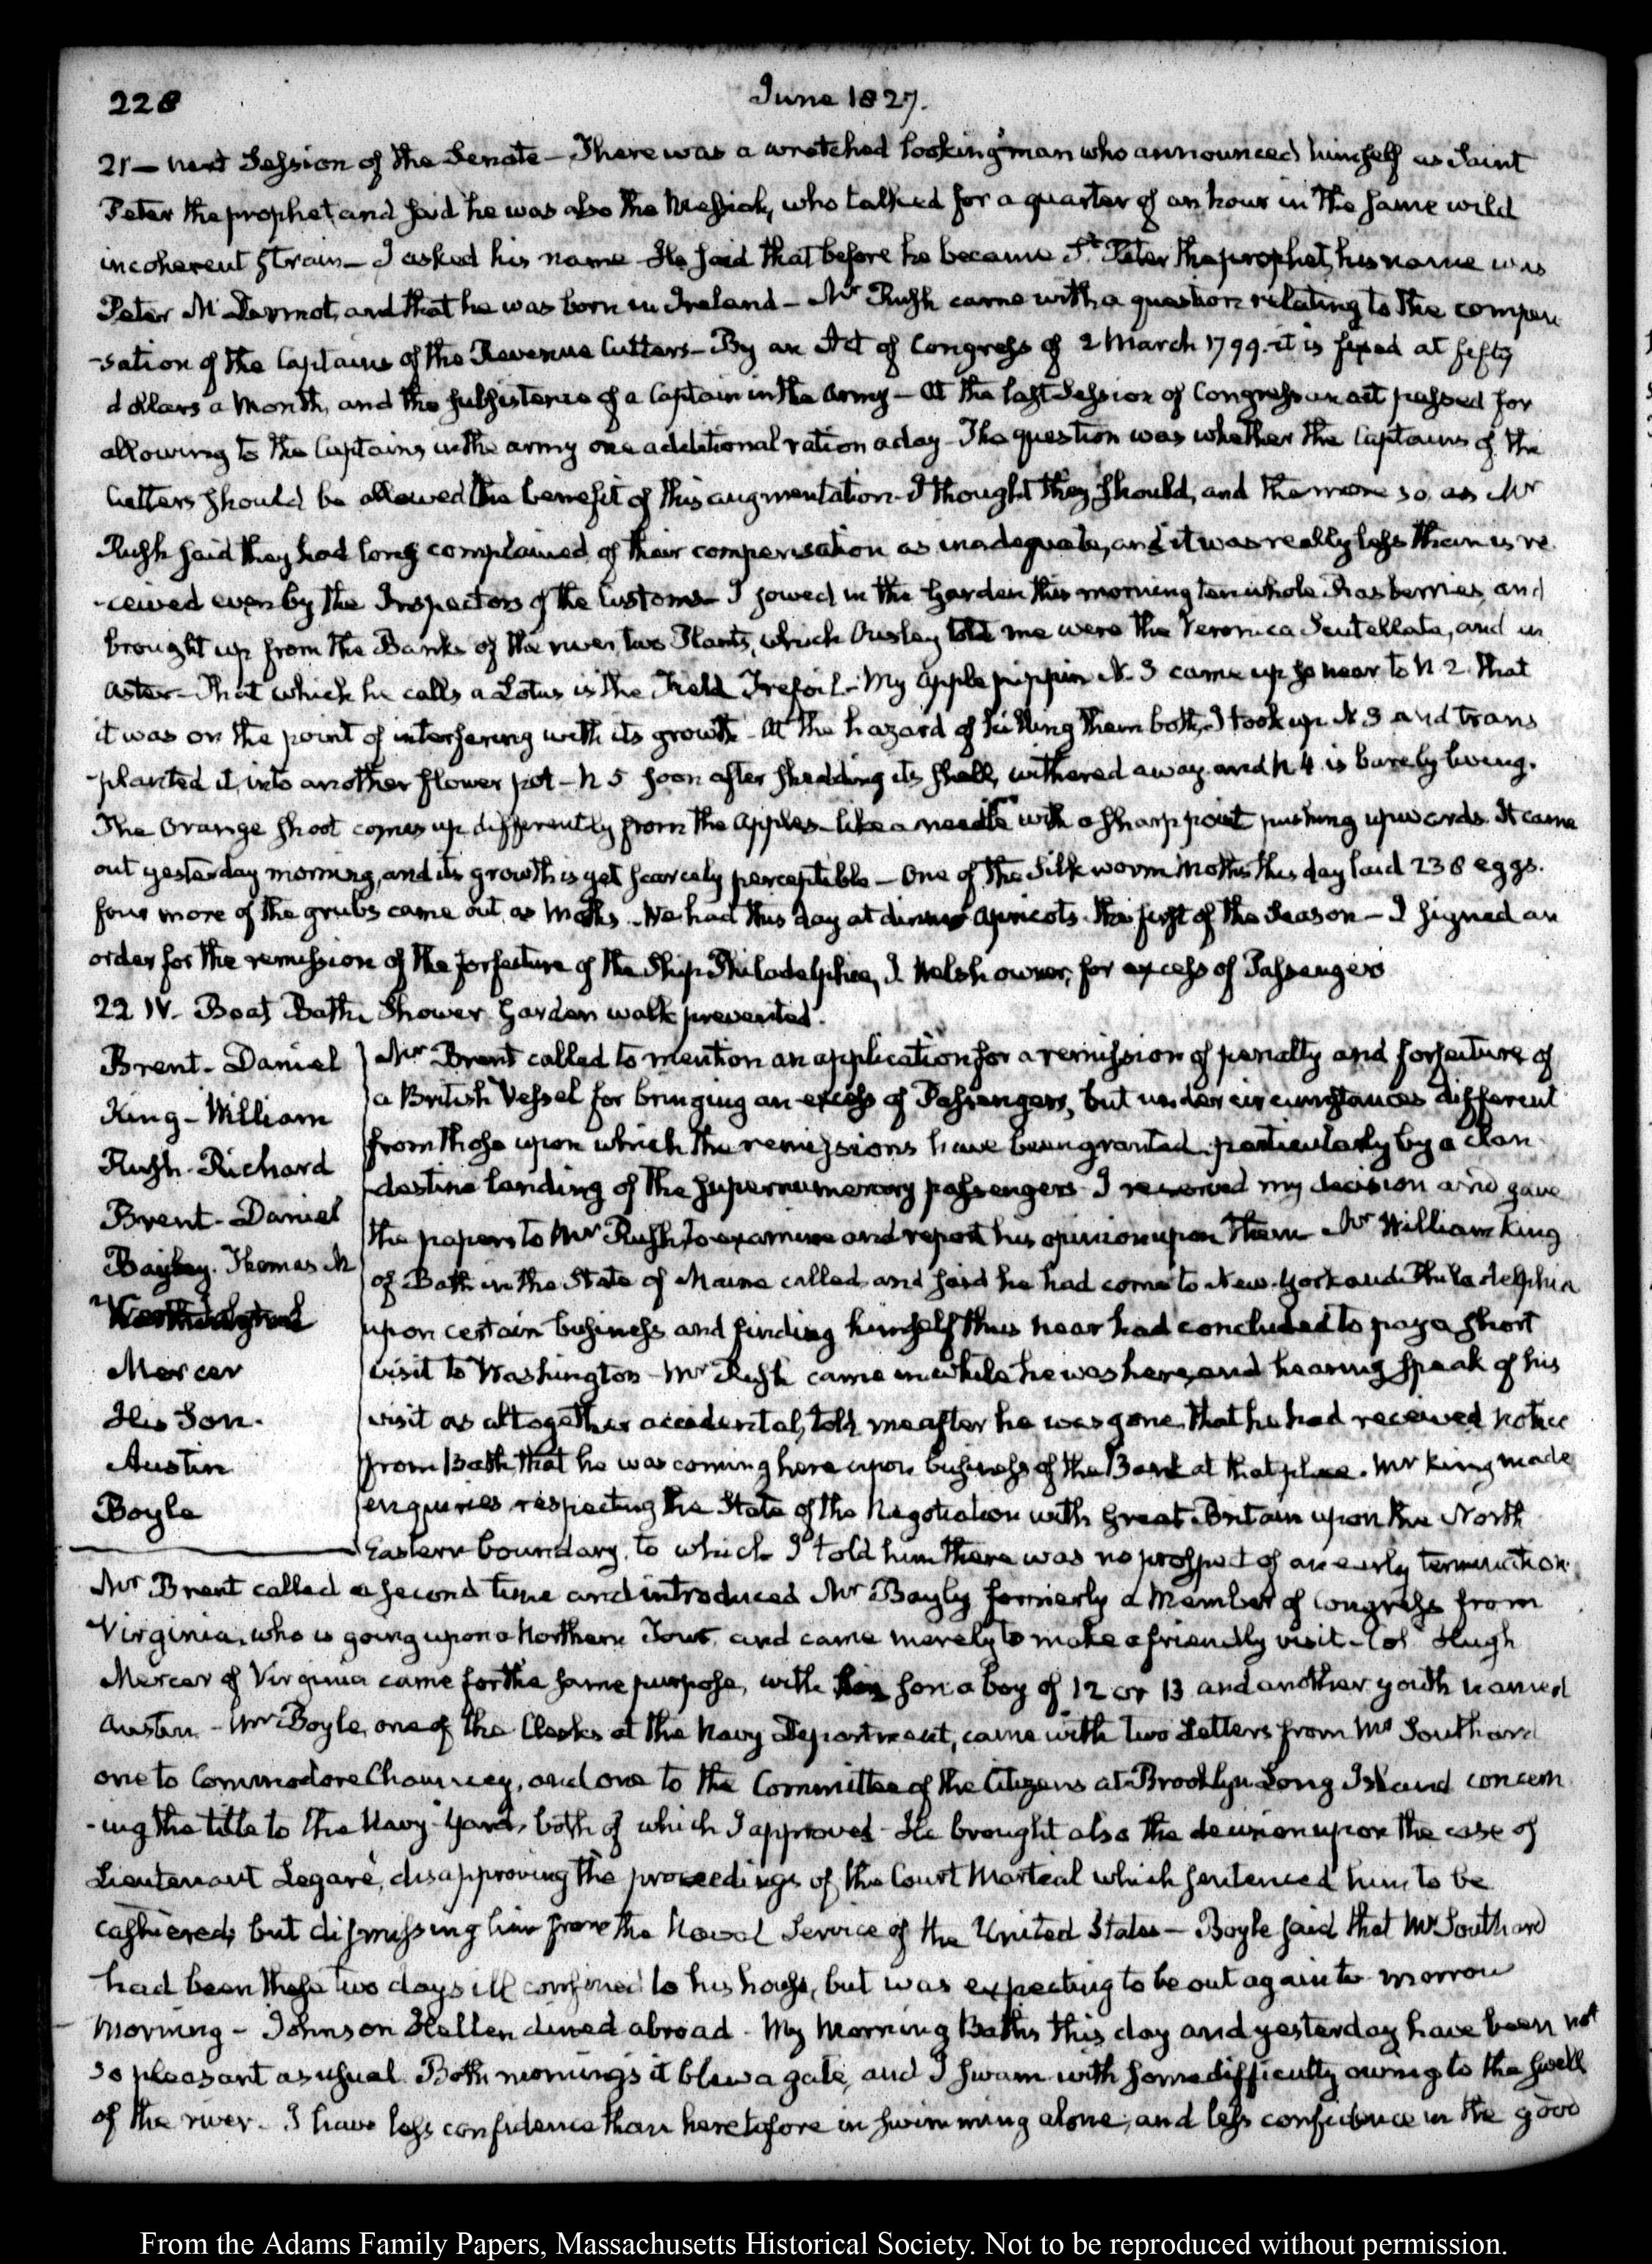 228
June 1827.
21 — next Session of the Senate — There was a wretched looking man who announced himself as Saint
Peter the prophet and said he was also the Messiah, who talked for a quarter of an hour in the same wild
incoherent strain — I asked his name He said that before he became St. Peter the prophet, his name was
Peter McDermot, and that he was born in Ireland — Mr Rush came with a question relating to the compen
-sation of the Captains of the Revenue Cutters — By an Act of Congress of 2 March 1799. it is fixed at fifty
dollars a Month, and the subsistence of a Captain in the Army — At the last Session of Congress an act passed for
allowing to the Captains in the army one additional ration a day — The question was whether the Captains of the
Cutters should be allowed the benefit of this augmentation — I thought they should, and the more so as Mr
Rush said they had long complained of their compensation as inadequate, and it was really less than is re
-ceived even by the Inspectors of the Customs — I sowed in the Garden this morning ten whole Rasberries, and
brought up from the Banks of the river two Plants, which Ousley told me were the Veronica Scutellata, and an
Aster — That which he calls a Lotus is the Field Trefoil — My Apple pippin N. 3 came up so near to N 2 that
it was on the point of interfering with its growth — At the hazard of killing them both, I took up N 3 and trans
-planted it, into another flower pot — N 5 soon after shedding its shell, withered away and N 4 is barely living.
The Orange shoot comes up differently from the Apples — like a needle with a sharp point pushing upwards. It came
out yesterday morning, and its growth is yet scarcely perceptible — One of the Silk worm Moths this day laid 238 eggs.
four more of the grubs came out as Moths — We had this day at dinner Apricots the first of the Season — I signed an
order for the remission of the forfeiture of the Ship Philadelphia, J. Welsh owner, for excess of Passengers
22 IV. Boat Bath Shower Garden walk prevented.
Brent - Daniel
King - William
Rush - Richard
Brent - Daniel
Bayley. Thomas M
Mercer
His Son.
Austin
Boyle
Mr Brent called to mention an application for a remission of penalty and forfeiture of
a British Vessel for bringing an excess of Passengers, but under circumstances different
from those upon which the remissions have been granted particularly by a clan
-destine landing of the supernumerary passengers — I reserved my decision and gave
the papers to Mr Rush, to examine and report his opinion upon them — Mr William King
of Bath in the State of Maine called and said he had come to New-York and Philadelphia
upon certain business and finding himself thus near had concluded to pay a short
visit to Washington — Mr Rush came in while he was here, and hearing speak of his
visit as altogether accidental, told me after he was gone that he had received notice
from Bath that he was coming here upon business of the Bank at that place. Mr King made
enquiries respecting the State of the Negotiation with Great-Britain upon the North
Eastern boundary, to which I told him there was no prospect of an early termination.
Mr Brent called a second time and introduced Mr Bayly formerly a Member of Congress from
Virginia, who is going upon a Northern Tour, and came merely to make a friendly visit — Col. Hugh
Mercer of Virginia came for the same purpose, with his son a boy of 12 or 13 and another youth named
Austin — Mr Boyle, one of the Clerks at the Navy Department, came with two Letters from Mr Southard
one to Commodore Chauncey, and one to the Committee of the Citizens at Brooklyn Long Island concern
-ing the title to the Navy-Yard, both of which I approved — He brought also the decision upon the case of
Lieutenant Legaré, disapproving the proceedings of the Court Martial which sentenced him to be
cashiered, but dismissing him from the Naval Service of the United States — Boyle said that Mr Southard
had been these two days ill confined to his house, but was expecting to be out again to-morrow
Morning — Johnson Hellen dined abroad — My Morning Baths this day and yesterday have been not
so pleasant as usual. Both mornings it blew a gale, and I swam with some difficulty owing to the swell
of the river. I have less confidence than heretofore in swimming alone, and less confidence in the good
From the Adams Family Papers, Massachusetts Historical Society. Not to be reproduced without permission.